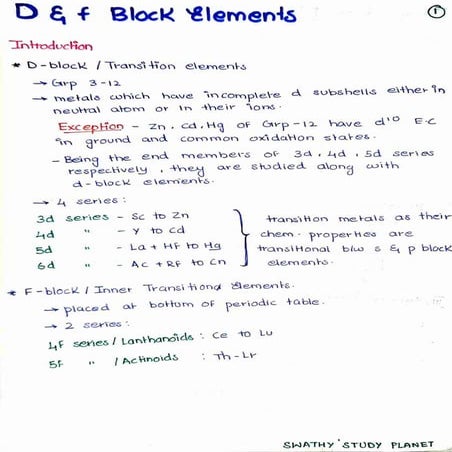 D & f Block Elements
1
Introduction
* D-block / Transition elements
→ Grp 3-12
→ metals which have incomplete d subshells either in
neutral atom or in their ions.
Exception - Zn, Cd, Hg of Grp-12 have d¹⁰ E.C
in ground and common oxidation states.
- Being the end members of 3d, 4d, 5d series
respectively, they are studied along with
d-block elements.
→ 4 series:
3d series - Sc to Zn
4d " - Y to Cd
5d " - La + Hf to Hg
6d " - Ac + Rf to Cn
transition metals as their
chem. properties are
transitional b/w s & p block
elements.
* F-block / Inner Transitional Elements.
→ placed at bottom of periodic table.
→ 2 series:
4f series / Lanthanoids : Ce to Lu
5f " / Actinoids : Th-Lr
SWATHY'STUDY PLANET